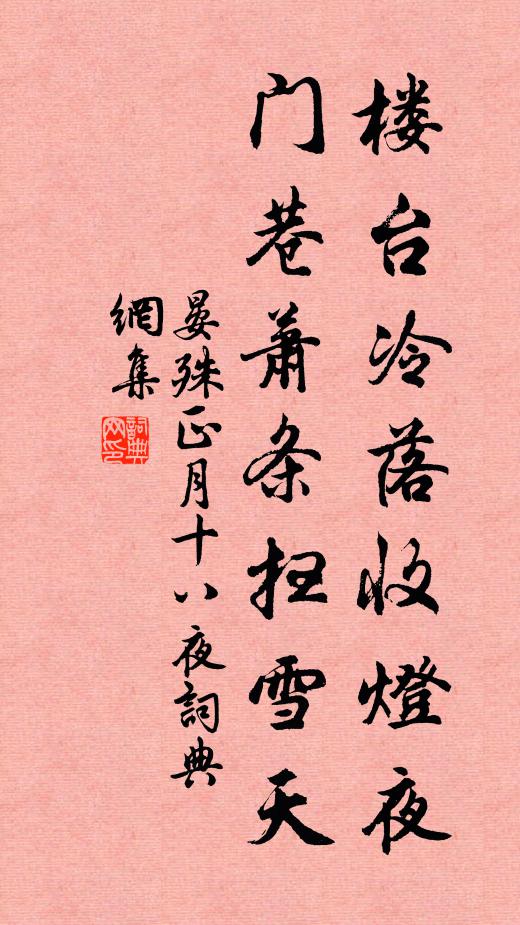 楼台冷落收燈夜
门巷蕭条扫雪天
晏殊正月十八夜詞典
網集
詞典
网印